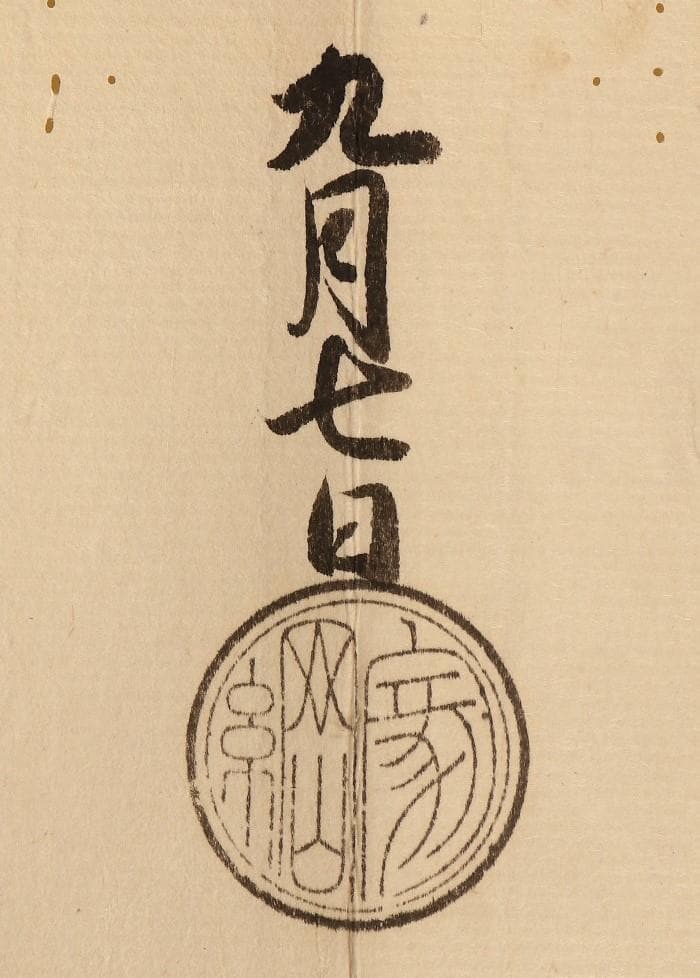 九月七日